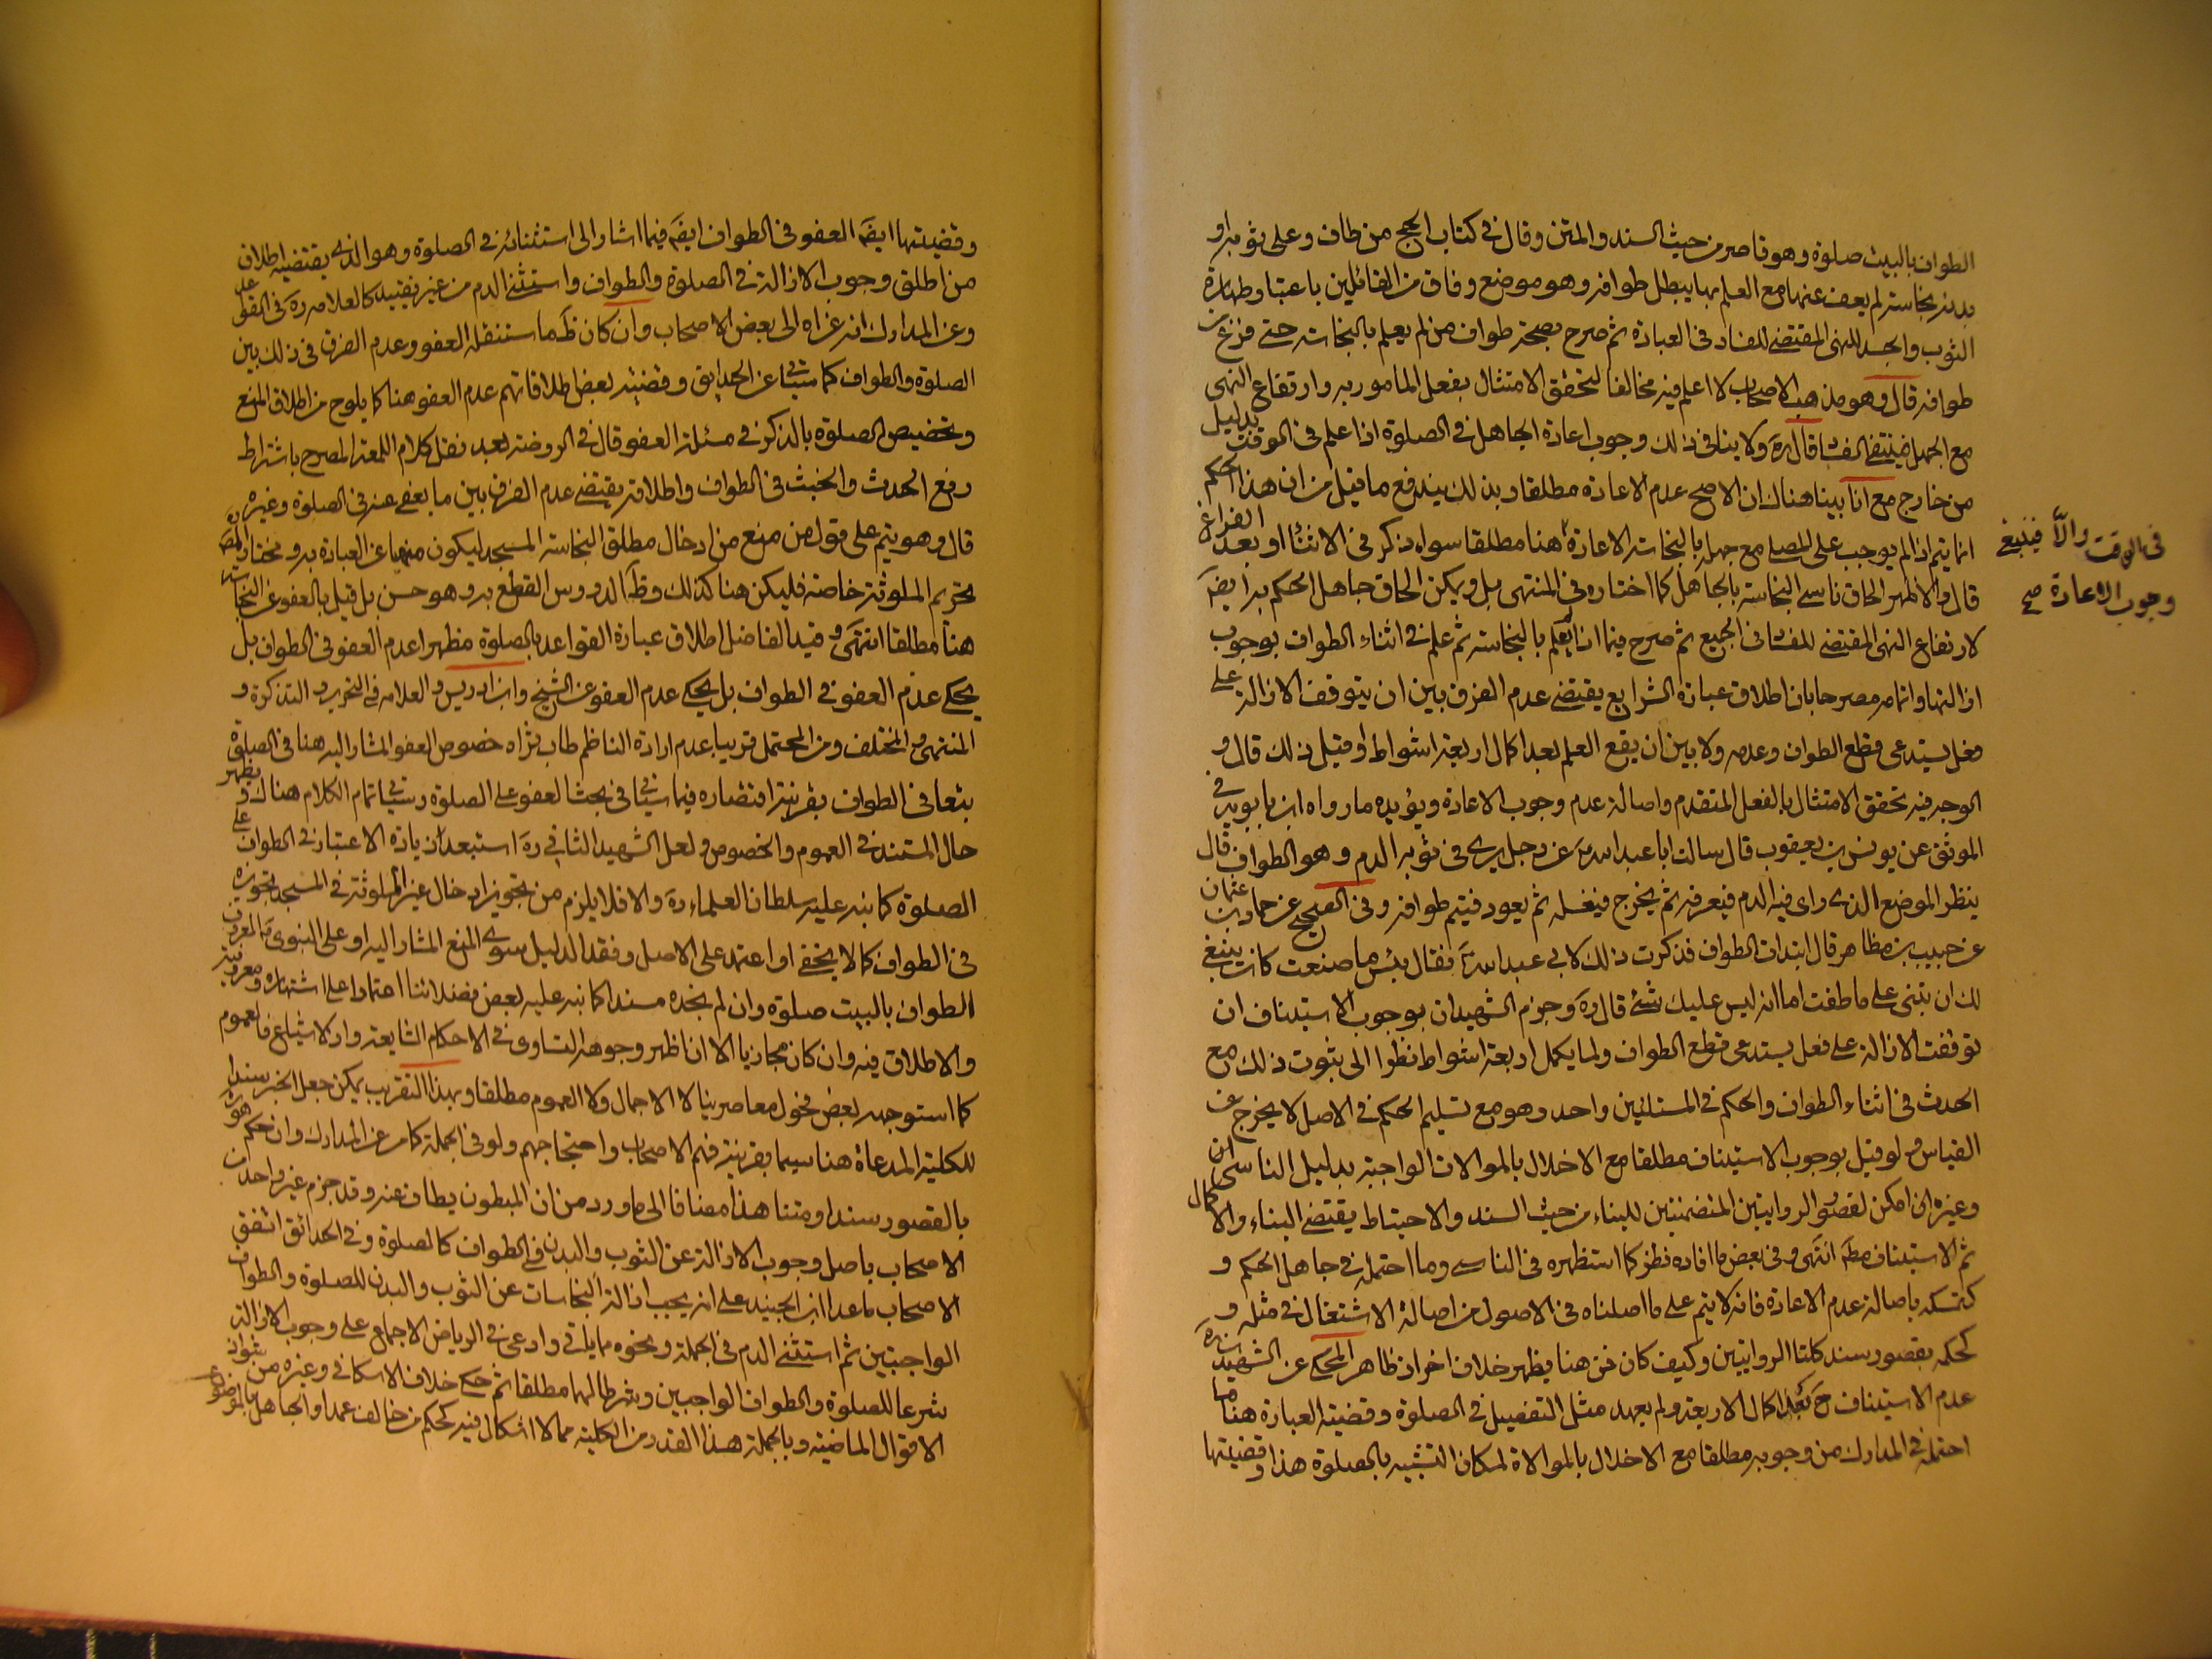 الطواف بالبيت صلوة وهو قاصر من حيث السند والمتن وقال في كتاب الحج من طاف وعلى ثوبه او
بدنه نجاسة لم يعف عنها مع العلم بها يبطل طوافه وهو موضع وفاق من القائلين باعتبار طهارة
الثوب والجسد للنهى المقتضى للفساد في العبادة ثم صرح بصحة طواف من لم يعلم بالنجاسة حتى فرغ من
طوافه قال وهو مذهب الاصحاب لا اعلم فيه مخالفا لتحقق الامتثال بفعل المامور به وارتفاع النهى
مع الجهل فينتفى الفساد قال ره ولا ينافى ذلك وجوب اعادة الجاهل في الصلوة اذا علم في الوقت بدليل
من خارج مع انا بينا هناك ان الاصح عدم الاعادة مطلقا وبذلك يندفع ما قيل من ان هذا الحكم
انما يتم اذا لم يوجب على المصلى مع جهله بالنجاسة الاعادة هنا مطلقا سواء ذكر في الاثناء او بعد الفراغ
في الوقت والّا فينبغى
وجوب الاعادة صح
قال والاظهر الحاق ناسى النجاسة بالجاهل كما اختاره في المنتهى بل ويمكن الحاق جاهل الحكم به ايضَ
لارتفاع النهى المقتضى للفساد في الجميع ثم صرح فيما اذا لم يعلم بالنجاسة ثم علم في اثناء الطواف بوجوب
ازالتها واتمامه مصرحا بان اطلاق عبارة الشرايع يقتضى عدم الفرق بين ان يتوقف الازالة على
فعل يستدعى قطع الطواف وعدمه ولا بين ان يقع العلم بعد اكمال اربعة اشواط او قبل ذلك قال و
الوجه فيه تحقق الامتثال بالفعل المتقدم واصالة عدم وجوب الاعادة ويؤيده ما رواه ابن بابويه في
الموثق عن يونس بن يعقوب قال سالت ابا عبد الله عن رجل يرى في ثوبه الدم وهو الطواف قال
ينظر الموضع الذى راى فيه الدم فيعرفه ثم يخرج فيغسله ثم يعود فيتم طوافه وفي الصحيح عن حماد بن عثمان
عن حبيب بن مظاهر قال ابتدات الطواف فذكرت ذلك لابى عبد الله فقال بئس ما صنعت كان ينبغى
لك ان تبنى على ما طفت اما انه ليس عليك شئ قال ره وجزم الشهيدان بوجوب الاستيناف ان
توقفت الازالة على فعل يستدعى قطع الطواف ولما يكمل اربعة اشواط نظرا الى ثبوت ذلك مع
الحدث في اثناء الطواف والحكم في المسئلتين واحد وهو مع تسليم الحكم في الاصل لا يخرج عن
القياس ولو قيل بوجوب الاستيناف مطلقا مع الاخلال بالموالات الواجبة بدليل الناسى
وغيره امكن لقصور الروايتين المتضمنتين للبناء من حيث السند والاحتياط يقتضى البناء والاكمال
ثم الاستيناف مطَ انتهى وفى بعض ما افاده نظر كما استظهره في الناسى وما احتمله في جاهل الحكم و
كتمسكه باصالة عدم الاعادة فانه لا يتم على ما اصلناه في الاصول من اصالة الاشتغال في مثله و
كحكمه بقصور سند كلتا الروايتين وكيف كان فمن هنا يظهر خلاف اخر اذ ظاهر المحكى عن الشهيد
عدم الاستيناف ح بعد اكمال الاربعة ولم يعهد مثل التفصيل في الصلوة وقضيته العبارة هنا ما
احتمله في المدارك من وجوبه مطلقا مع الاخلال بالموالاة لمكان التشبيه بالصلوة هذا وقضيتها
وقضيتها ايضَ العفو في الطواف ايضَ فيما اشار الى استثنائه في الصلوة وهو الذى يقتضيه اطلاق
من اطلق وجوب الازالة في الصلوة والطواف واستثنى الدم من غير تقييد كالعلامه ره في القواعد
وعن المدارك انه عزاه الى بعض الاصحاب وان كان ظَ ما ستنقله العفو وعدم الفرق في ذلك بين
الصلوة والطواف كما سيئاتى عن الحدايق وقضيته بعض اطلاقاتهم عدم العفو هنا كما يلوح من اطلاق المنع
وتخصيص الصلوة بالذكر في مسئلة العفو قال في الروضة بعد نقل كلام اللمعة المصرح باشتراط
رفع الحدث والخبث في الطواف واطلاقه يقتضى عدم الفرق بين ما يعفى عنه في الصلوة وغيره
قال وهو يتم على قول من منع من ادخال مطلق النجاسة المسجد ليكون منهيا عن العبادة به ومختار المصَ ره
تحريم الملوثة خاصة فليكن هنا كذلك وظَ الدروس القطع به وهو حسن بل قيل بالعفو عن النجاسة
هنا مطلقا انتهى وقيد الفاضل اطلاق عبارة القواعد بالصلوة مظهرا عدم العفو في الطواف بل
يحكى عدم العفو في الطواف بل يحكى عدم العفو عن الشيخ وابن ادريس والعلامه في التحرير والتذكرة و
المنتهى والمختلف ومن المحتمل قريبا عدم ارادة الناظم طاب ثراه خصوص العفو المشار اليه هنا في الصلوة
بتعافى الطواف بقرينة اقتصاره فيما سيئاتى في بحث العفو على الصلوة وسيئاتى تمام الكلام هناك و يظهر
حال المستند في العموم والخصوص ولعل الشهيد الثانى ره استبعد زيادة الاعتبار في الطواف على
الصلوة كما نبه عليه سلطان العلماء ره والا فلا يلزم من تجويز ادخال غير الملوثة في المسجد تجويزه
في الطواف كما لا يخفى او اعتمد على الاصل وفقد الدليل سوى المنع المشار اليه او على النبوى المعروف
الطواف بالبيت صلوة وان لم نجده مسندا كما نبه عليه بعض فضلائنا اعتمادا على اشتهاره ومعروفيته
والاطلاق فيه وان كان مجازيا الا ان اظهر وجوهه التساوى في الاحكام الشايعة واولا شياع فالعموم
كما استوجهه بعض فحول معاصرينا لا الاجمال ولا العموم مطلقا وبهذا التقريب يمكن جعل الخبر سندا
للكلية المدعاة هنا سيما بقرينة فهم الاصحاب واحتجاجهم ولو في الجملة كما مر عن المدارك وان حكم هو ره
بالقصور سندا ومتنا هذا مضافا الى ما ورد من ان المبطون يطاف عنه وقد جزم غير واحد من
الاصحاب باصل وجوب الازالة عن الثوب والبدن في الطواف كالصلوة وفي الحدائق اتفق
الاصحاب ما عدا ابن الجنيد على انه يجب ازالة النجاسات عن الثوب والبدن للصلوة والطواف
الواجبين ثم استثنى الدم في الجملة ونحوه ما ياتى وادعى في الرياض الاجماع على وجوب الازالة
شرعا للصلوة والطواف الواجبين وشرطا لهما مطلقا ثم حكى خلاف الاسكافى وغيره من
الاقوال الماضية وبالجملة هذا القدر من الكلية مما لا اشكال فيه كحكم من خالف عمدا والجاهل بالموضوع